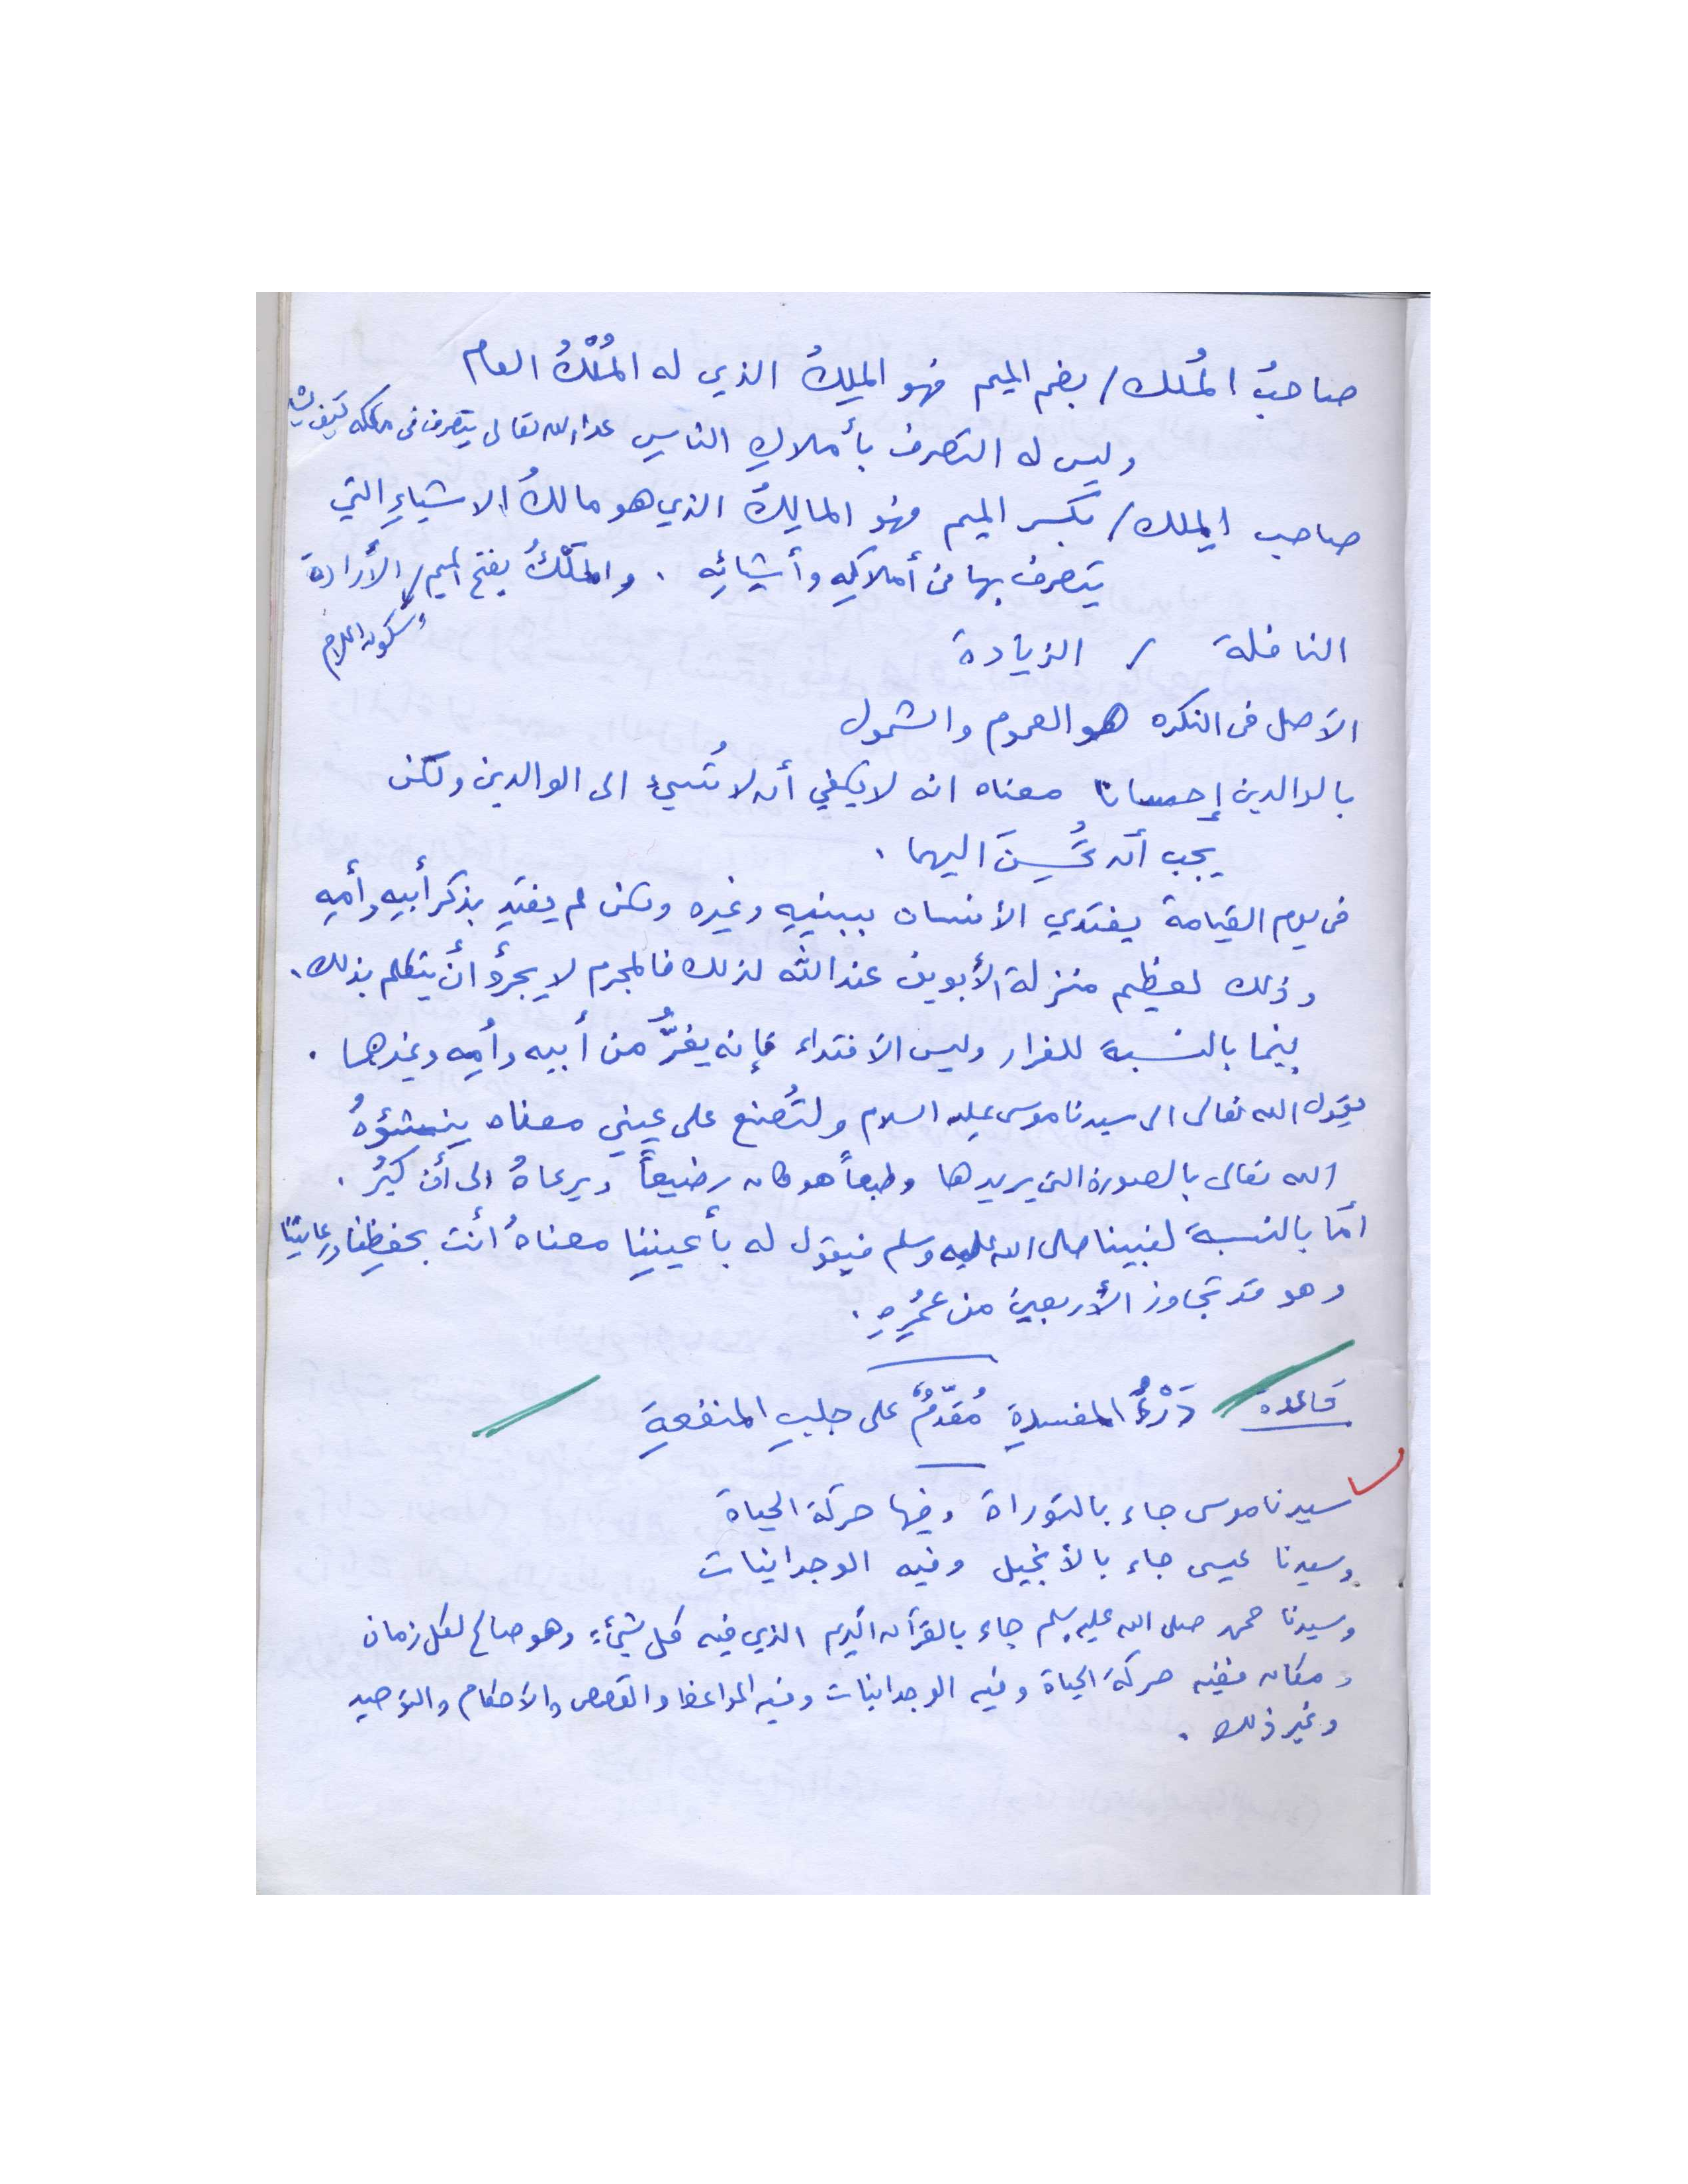 صاحبُ المُلك / بضم الميم فهو المَلِكُ الذي له المُلْكُ العام
وليس له التصرف بأملاكِ الناسِ عدا الله تعالى يتصرف في ملكه كيف يشاء
صاحب المِلك / بكسر الميم فهو المالِكُ الذي هو مالكُ الاشياءِ التي
يتصرف بها من أملاكِهِ وأشيائِه . والمَلْكُ بفتح الميم / الأرادة
وسكون اللام
النافلة / الزيادة
الأصل في النكره هو العموم والشمول
بالوالدين إحسانا معناه انه لا يكفي أن لا تُسيءَ الى الوالدين ولكن
يجب أن تُحسِنَ اليهما .
في يوم القيامة يفتدي الأنسان ببنيهِ وغيره ولكن لم يفتدِ بذكر أبيهِ وأمِهِ
وذلك لعظيم منزلة الأبوين عند الله لذلك فالمجرم لا يجرؤُ أنْ يتكلم بذلك .
بينما بالنسبة للفرار وليس الافتداء فإنه يفرُّ من أبيه وأُمِه وغيرهما .
يقول الله تعالى الى سيدنا موسى عليه السلام ولتُصنع على عيني معناه ينشؤهُ
الله تعالى بالصورة التي يريدها وطبعاً هو كان رضيعاً ويرعاهُ الى أن كبُرَ .
أمّا بالنسبة لنبينا صلى الله عليه وسلم فيقول له بأعيننِا معناهُ أنت بحفظِنا ورعايتنا
وهو قد تجاوز الأربعين من عمُرِهِ .
قاعدة دَرْءُ المفسدةِ مُقدّمٌ على جلبِ المنفعةِ
سيدنا موسى جاء بالتوراة وفيها حركة الحياة
وسيدنا عيسى جاء بالأنجيل وفيه الوجدانيات
وسيدنا محمد صلى الله عليه وسلم جاء بالقرآن الكريم الذي فيه كل شيء وهو صالح لكل زمان
ومكان ففيه حركة الحياة وفيه الوجدانيات وفيه المواعظ والقصص والأحكام والتوحيد
وغير ذلك .